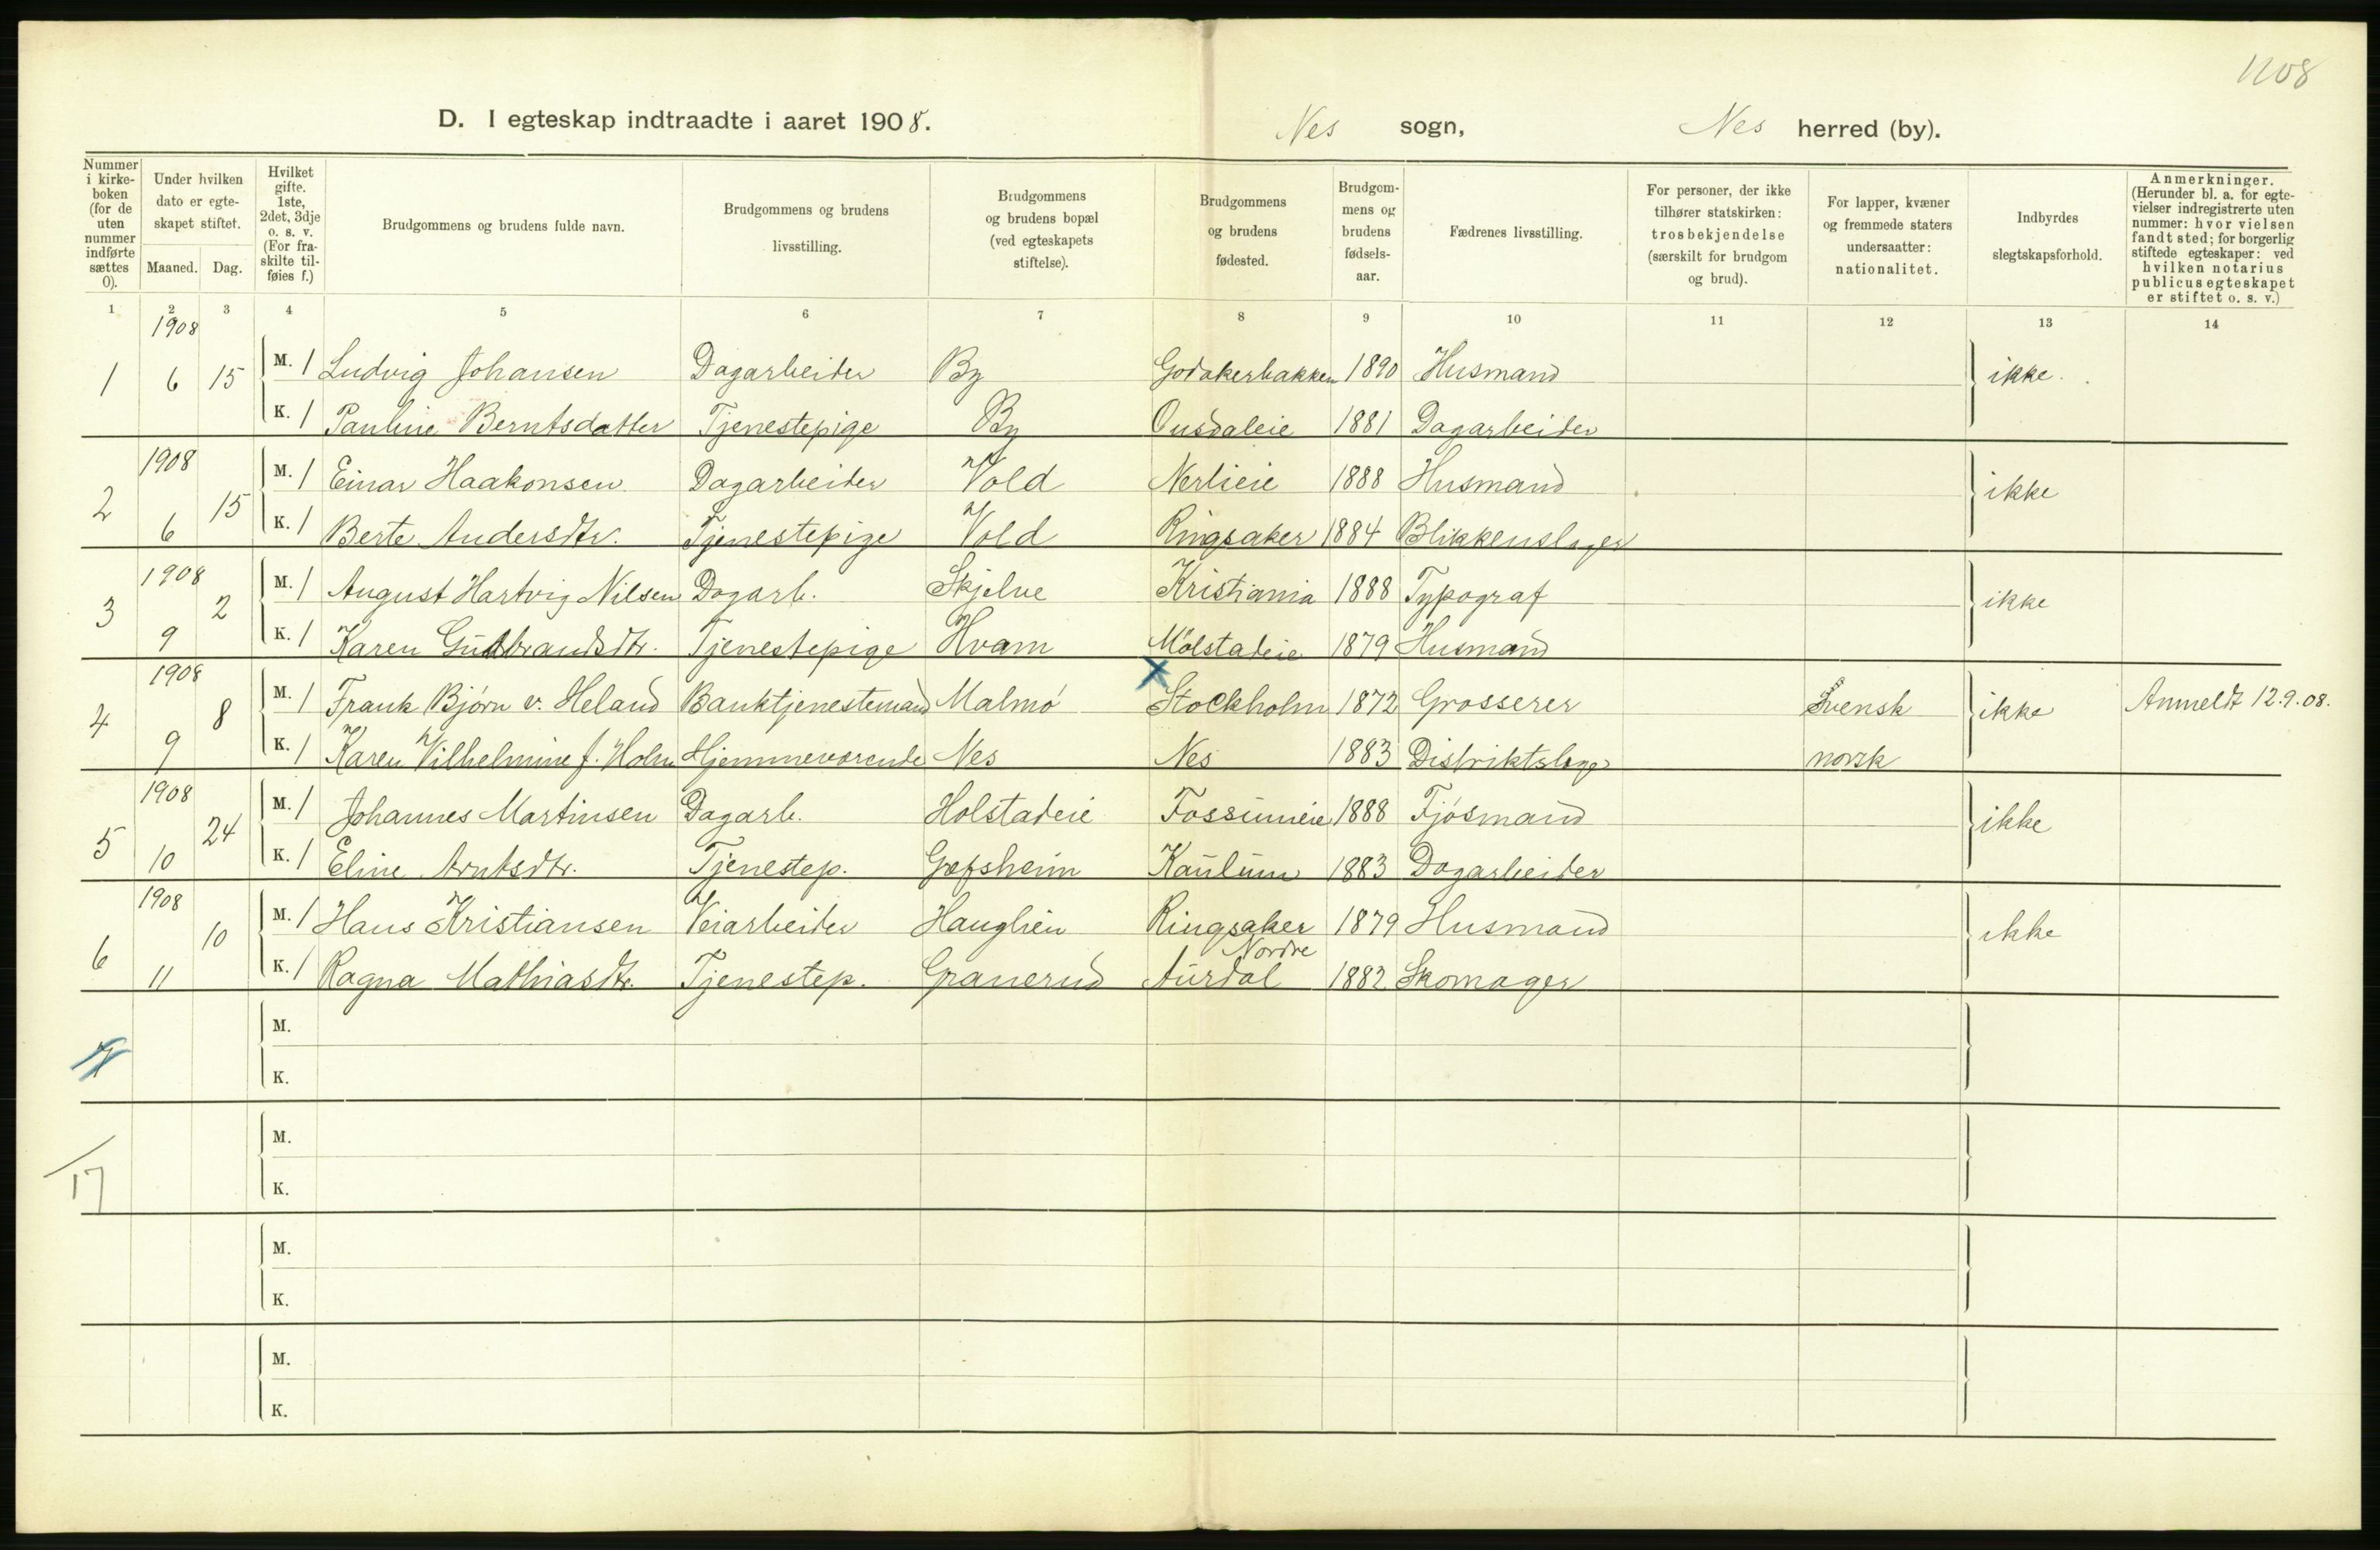 1108
D. I egteskap indtraadte i aaret 1908. Nes sogn, Nes herred (by).
Nummer i kirkeboken (for de uten nummer indførte sættes 0).
Under hvilken dato er egteskapet stiftet.
Maaned. Dag.
Hvilket gifte. 1ste, 2det, 3dje o. s. v. (For fraskilte tilføies f.)
Brudgommens og brudens fulde navn.
Brudgommens og brudens livsstilling.
Brudgommens og brudens bopæl (ved egteskapets stiftelse).
Brudgommens og brudens fødested.
Brudgommens og brudens fødselsaar.
Fædrenes livsstilling.
For personer, der ikke tilhører statskirken: trosbekjendelse (særskilt for brudgom og brud).
For lapper, kvæner og fremmede staters undersaatter: nationalitet.
Indbyrdes slegtskapsforhold.
Anmerkninger. (Herunder bl. a. for egtevielser indregistrerte uten nummer: hvor vielsen fandt sted; for borgerlig stiftede egteskaper: ved hvilken notarius publicus egteskapet er stiftet o. s. v.)
1 2 3 4 5 6 7 8 9 10 11 12 13 14
1908
1 6 15 M. 1 Ludvig Johansen Dagarbeider By Godakerbakken 1890 Husmand ikke.
K. 1 Pauline Berntsdatter Tjenestepige By Ousdaleie 1881 Dagarbeider
1908
2 6 15 M. 1 Einar Haakonsen Dagarbeider Vold Nerlieie 1888 Husmand ikke
K. 1 Berte Andersdtr. Tjenestepige Vold Ringsaker 1884 Blikkenslager
1908
3 9 2 M. 1 August Hartvig Nilsen Dagarb. Skjelve Kristiania 1888 Typograf ikke
K. 1 Karen Gudbrandsdtr. Tjenestepige Hvam Molstadeie 1879 Husmand
1908
4 9 8 M. 1 Frank Bjørn v. Heland Banktjenestemand Malmø Stockholm 1872 Grosserer Svensk ikke Anmeldt 12.9.08.
K. 1 Karen Vilhelmine f. Holm Hjemmeværende Nes Nes 1883 Distriktslæge norsk
1908
5 10 24 M. 1 Johannes Martinsen Dagarb. Holstadeie Fossumeie 1888 Fjøsmand ikke
K. 1 Eline Arntsdtr. Tjenestep. Gæfsheim Kaulum 1883 Dagarbeider
1908
6 11 10 M. 1 Hans Kristiansen Veiarbeider Hauglien Ringsaker 1879 Husmand ikke
K. 1 Ragna Mathiasdtr. Tjenestep. Granerud Nordre Aurdal 1882 Skomager
M.
K.
M.
17 K.
M.
K.
M.
K.